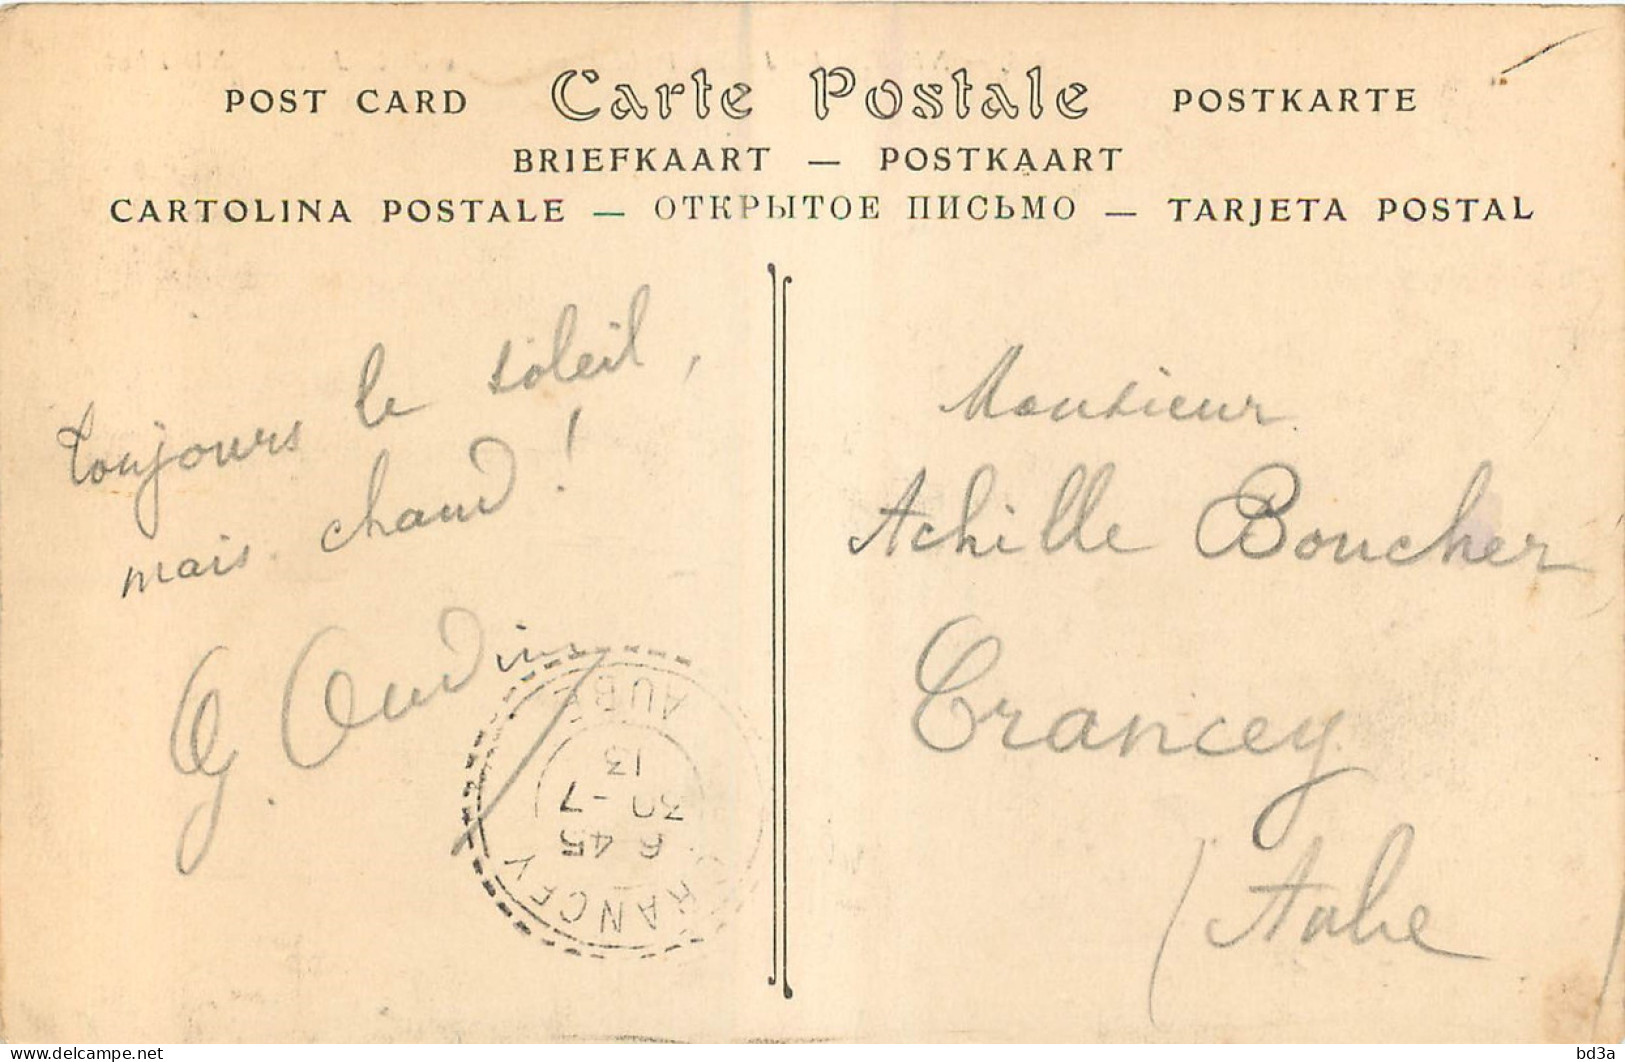 POST CARD Carte Postale POSTKARTE
BRIEFKAART — POSTKAART
CARTOLINA POSTALE — ОТКРЫТОЕ ПИСЬМО — TARJETA POSTAL
toujours le soleil,
mais chaud !
G. Oudin
Monsieur
Achille Boucher
Trancey
(Aube)
TRANCEY
6 45
30 -7
13
AUBE
delcampe.net
bd3a